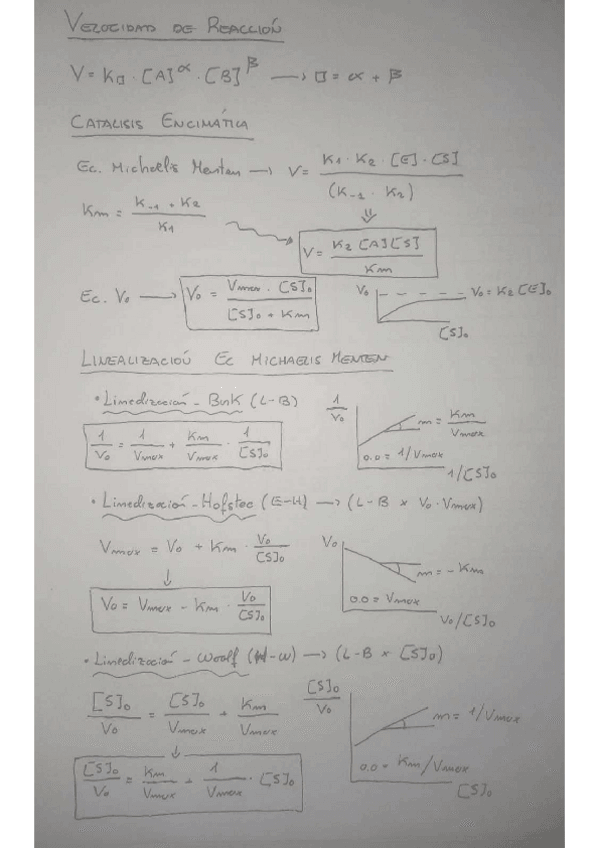 VELOCIDAD DE REACCIÓN
V = K□ · [A]^α · [B]^β → □ = α + β
CATALISIS ENCIMÁTICA
Ec. Michaelis Menten → V = K1 · K2 · [E] · [S] / (K-1 · K2)
Km = K-1 + K2 / K1
V = K2 [A][S] / Km
Ec. V0 → V0 = Vmax · [S]0 / [S]0 + Km
V0
V0 = K2 [E]0
[S]0
LINEALIZACIÓN EC MICHAELIS MENTEN
• Linealización - Burk (L-B)
1/V0 = 1/Vmax + Km/Vmax · 1/[S]0
1/V0
m = Km/Vmax
o.o = 1/Vmax
1/[S]0
• Linealización - Hofstee (E-H) → (L-B × V0 · Vmax)
Vmax = V0 + Km · V0/[S]0
V0 = Vmax - Km · V0/[S]0
V0
m = - Km
o.o = Vmax
V0/[S]0
• Linealización - Woolf (H-W) → (L-B × [S]0)
[S]0/V0 = [S]0/Vmax + Km/Vmax
[S]0/V0 = Km/Vmax + 1/Vmax · [S]0
[S]0/V0
m = 1/Vmax
o.o = Km/Vmax
[S]0